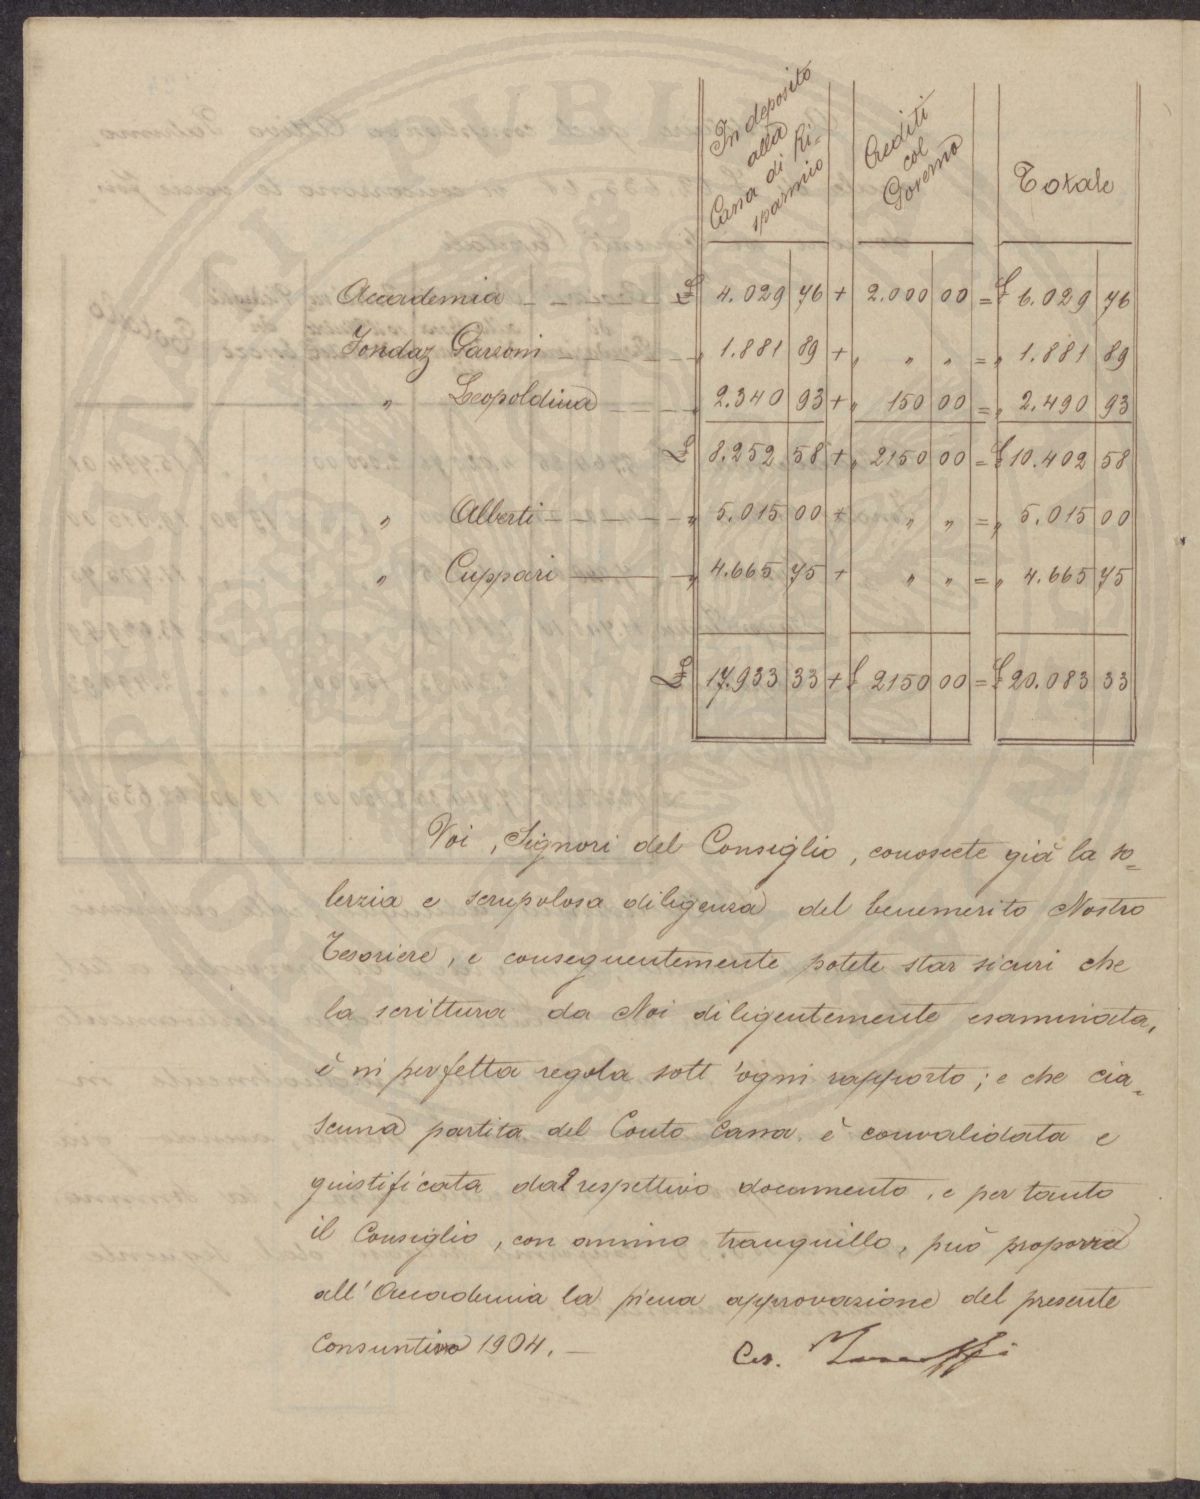 In deposito alla Cassa di Ri- sparmio | Crediti col Governo | Totale
Accademia - - - - £ 4.029 76 + 2.000 00 = £ 6.029 76
Fondaz Garzoni - - - - „ 1.881 89 + „ „ „ = „ 1.881 89
„ Leopoldina - - - „ 2.340 93 + „ 150 00 = „ 2.490 93
£ 8.252 58 + „ 2150 00 = £ 10.402 58
„ Alberti - - - - - „ 5.015 00 + „ „ = „ 5.015 00
„ Cuppari - - - „ 4.665 75 + „ „ = „ 4.665 75
£ 17.933 33 + £ 2150 00 = £ 20.083 33
Voi, Signori del Consiglio, conoscete già la so-
lerzia e scrupolosa diligenza del benemerito Nostro
Tesoriere, e conseguentemente potete star sicuri che
la scrittura da Noi diligentemente esaminata,
è in perfetta regola sott'ogni rapporto; e che cia-
scuna partita del Conto Cassa è convalidata e
giustificata dal respettivo documento, e per tanto
il Consiglio, con animo tranquillo, può proporre
all'Accademia la piena approvazione del presente
Consuntivo 1904. —
Ces.